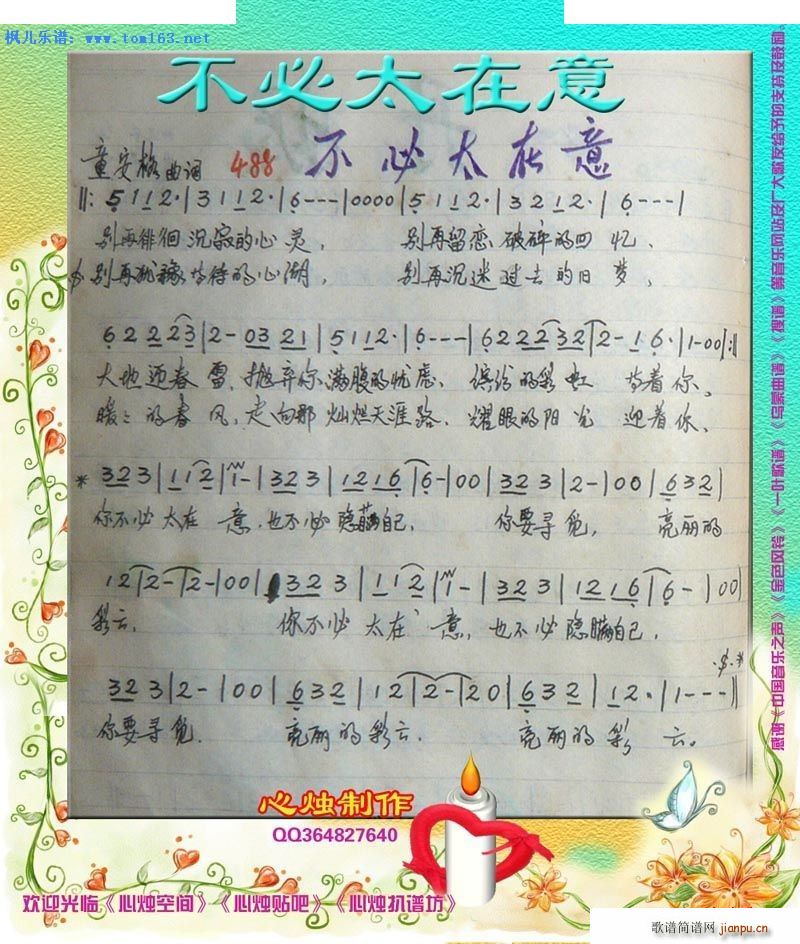 枫儿乐谱：www.tom163.net
不必太在意
童安格曲词 488 不必太在意
‖: 5 1 1 2· | 3 1 1 2· | 6 - - - | 0 0 0 0 | 5 1 1 2· | 3 2 1 2· | 6 - - - |
别再徘徊沉寂的心灵， 别再留恋破碎的回忆、
别再犹豫等待的心湖， 别再沉迷过去的旧梦，
6 2 2 2 2 3 | 2 - 0 3 2 1 | 5 1 1 2· | 6 - - - | 6 2 2 2 3 2 | 2 - 1 6· | 1 - 0 0 :‖
大地迎春雷，抛弃你满腹的忧虑、缤纷的彩虹 等着你、
暖暖的春风，走向那灿烂天涯路、耀眼的阳光 迎着你、
* 3 2 3 | 1 1 2 | 1 - | 3 2 3 | 1 2 1 6 | 6 - | 0 0 | 3 2 3 | 2 - | 0 0 | 6 3 2 |
你不必太在意，也不必隐瞒自己， 你要寻觅， 亮丽的
1 2 | 2 - | 2 - | 0 0 | 3 2 3 | 1 1 2 | 1 - | 3 2 3 | 1 2 1 6 | 6 - | 0 0 |
彩云、 你不必太在意，也不必隐瞒自己，
3 2 3 | 2 - | 0 0 | 6 3 2 | 1 2 | 2 - | 2 0 | 6 3 2 | 1 2· | 1 - - - ‖
你要寻觅、 亮丽的彩云、 亮丽的彩云。
心烛制作
QQ364827640
欢迎光临《心烛空间》《心烛贴吧》《心烛扒谱坊》
感谢《中国音乐之声》《金色风铃》《一叶歌谱》《乌蒙曲谱》《搜谱》等音乐网站及广大歌友给予的支持及鼓励
歌谱简谱网 jianpu.cn